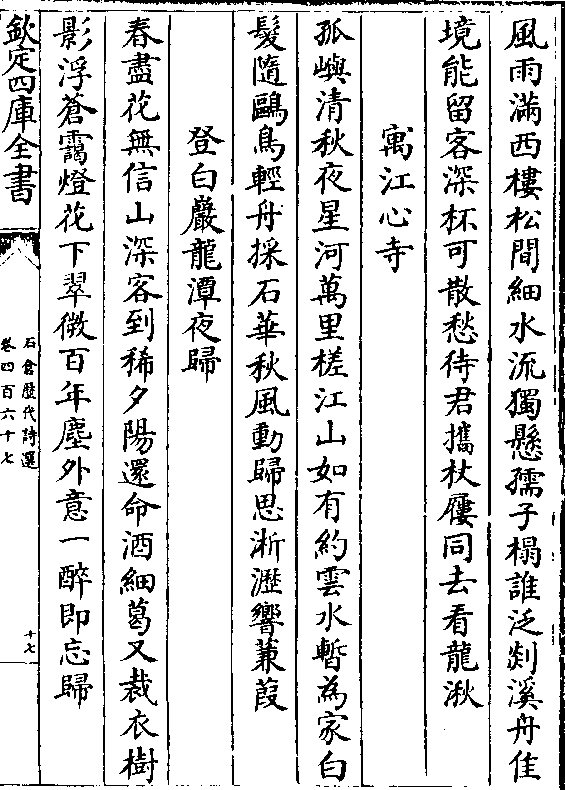 風雨滿西樓松間細水流獨懸孺子榻誰泛剡溪舟佳
境能留客深杯可散愁待君攜杖屨同去看龍湫
寓江心寺
孤嶼清秋夜星河萬里槎江山如有約雲水暫為家白
髮隨鷗鳥輕舟採石華秋風動歸思淅瀝響蒹葭
登白巖龍潭夜歸
春盡花無信山深客到稀夕陽還命酒細葛又裁衣樹
影浮蒼靄燈花下翠微百年塵外意一醉即忘歸
欽定四庫全書
石倉歷代詩選
卷四百六十七
十七